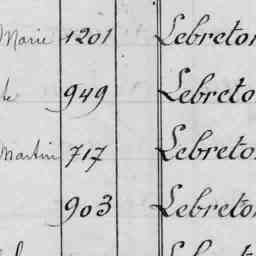 Marie 1201 Lebreton
949 Lebreto
Martin 717 Lebreto
903 Lebreto